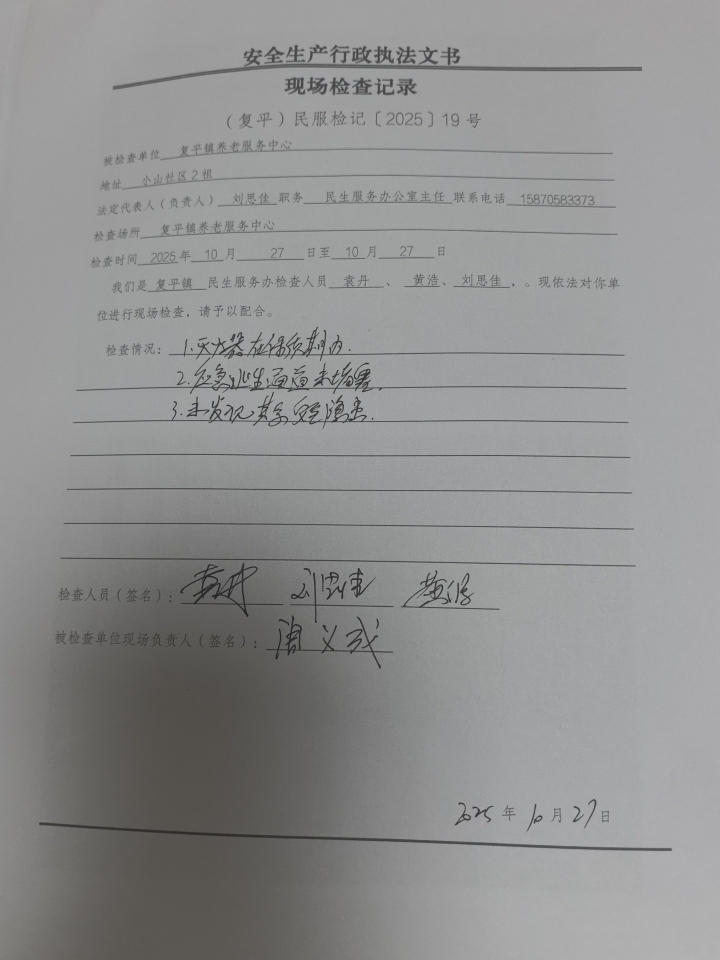 安全生产行政执法文书
现场检查记录
（复平）民服检记〔2025〕19号
被检查单位 复平镇养老服务中心
地址 小山社区2组
法定代表人（负责人） 刘思佳 职务 民生服务办公室主任 联系电话 15870583373
检查场所 复平镇养老服务中心
检查时间 2025年 10 月 27 日至 10 月 27 日
我们是 复平镇 民生服务办检查人员 袁丹 、 黄浩、 刘思佳 ，。现依法对你单
位进行现场检查，请予以配合。
检查情况： 1.灭火器在保质期内.
2.应急逃生通道未堵塞.
3.未发现其它安全隐患.
检查人员（签名）： 袁丹 刘思佳 黄浩
被检查单位现场负责人（签名）： 义成
2025 年 10 月 27 日